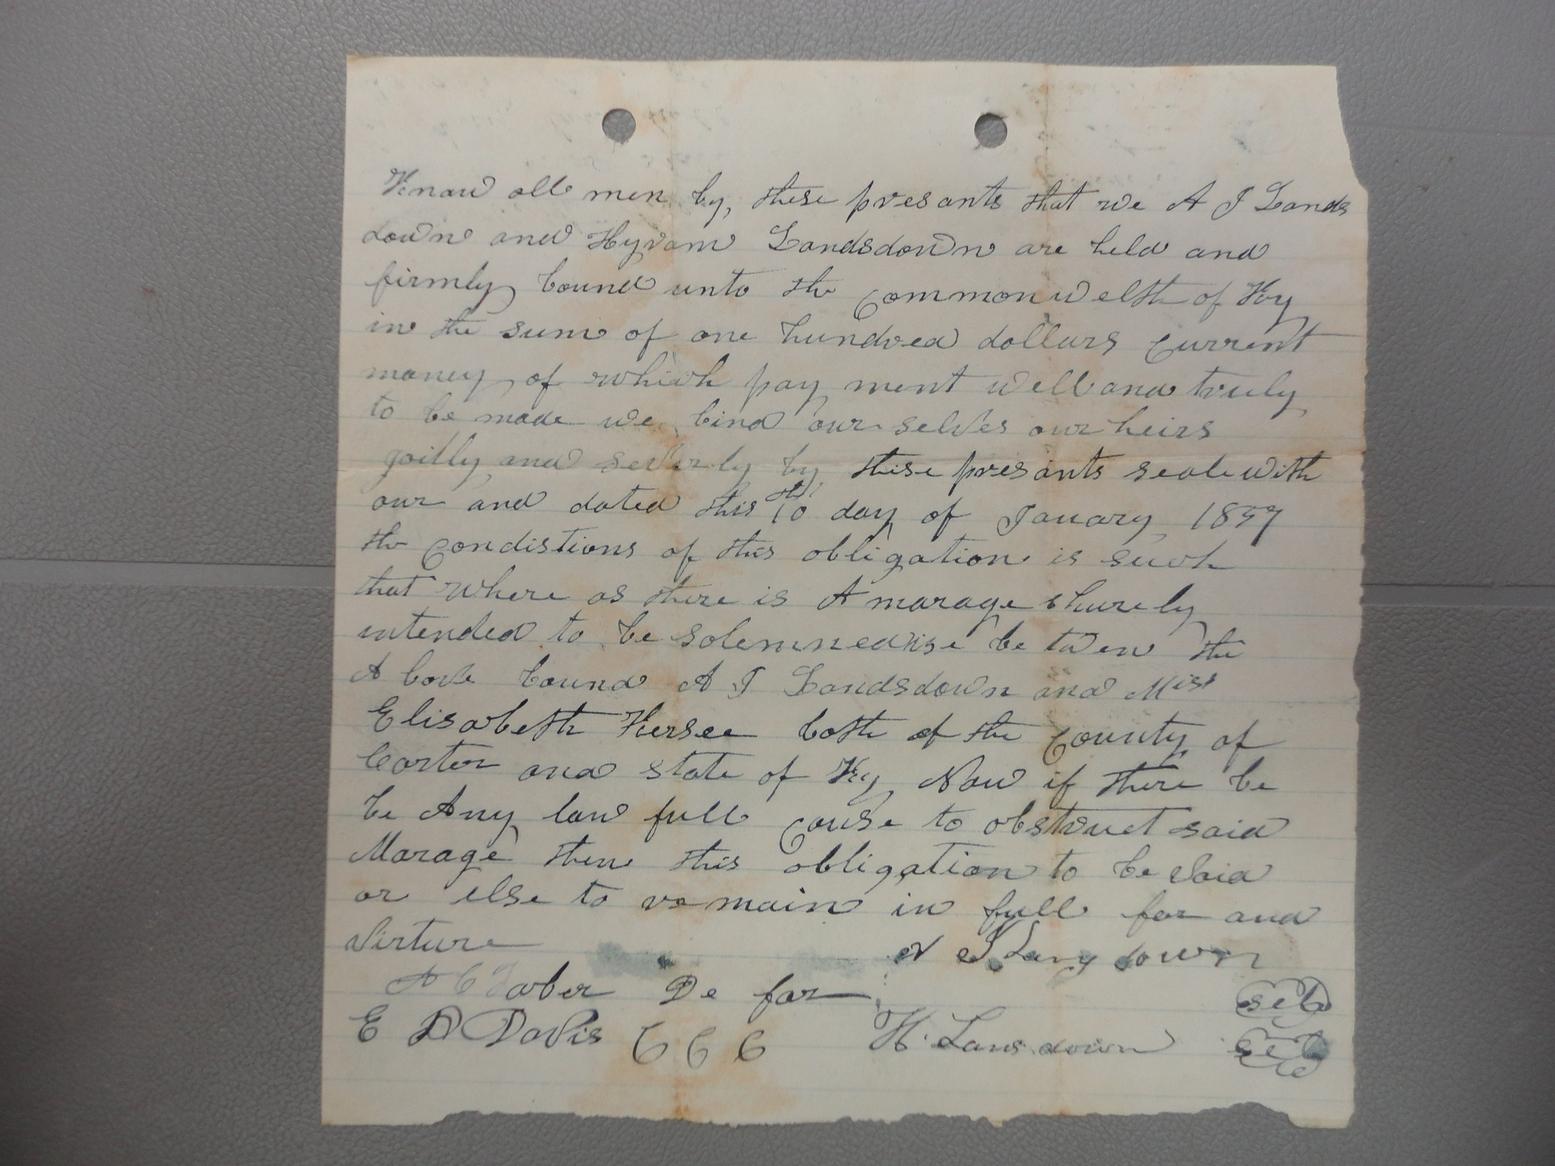 Know all men by, these presants that we A J Lands
down and Hyram Landsdown are held and
firmly bound unto the Commonwelth of Ky
in the sum of one hundred dollars current
money, of which pay ment well and truly
to be made we bind our selves our heirs
goilly and severly by these presants seale with
our and dated this 10th day of January 1897
the condistions of this obligation is such
that where as there is A marage shurely
intended to be solemnedise be twen the
A bove bound A J Landsdown and Miss
Elisabeth Kersee both of the County of
Carter and state of Ky Now if there be
be Any law full cause to obstruct said
Marage then this obligation to be void
or else to remain in full for and
virture A J Lansdown
De for sel
E D Davis C C C H. Lansdown sel